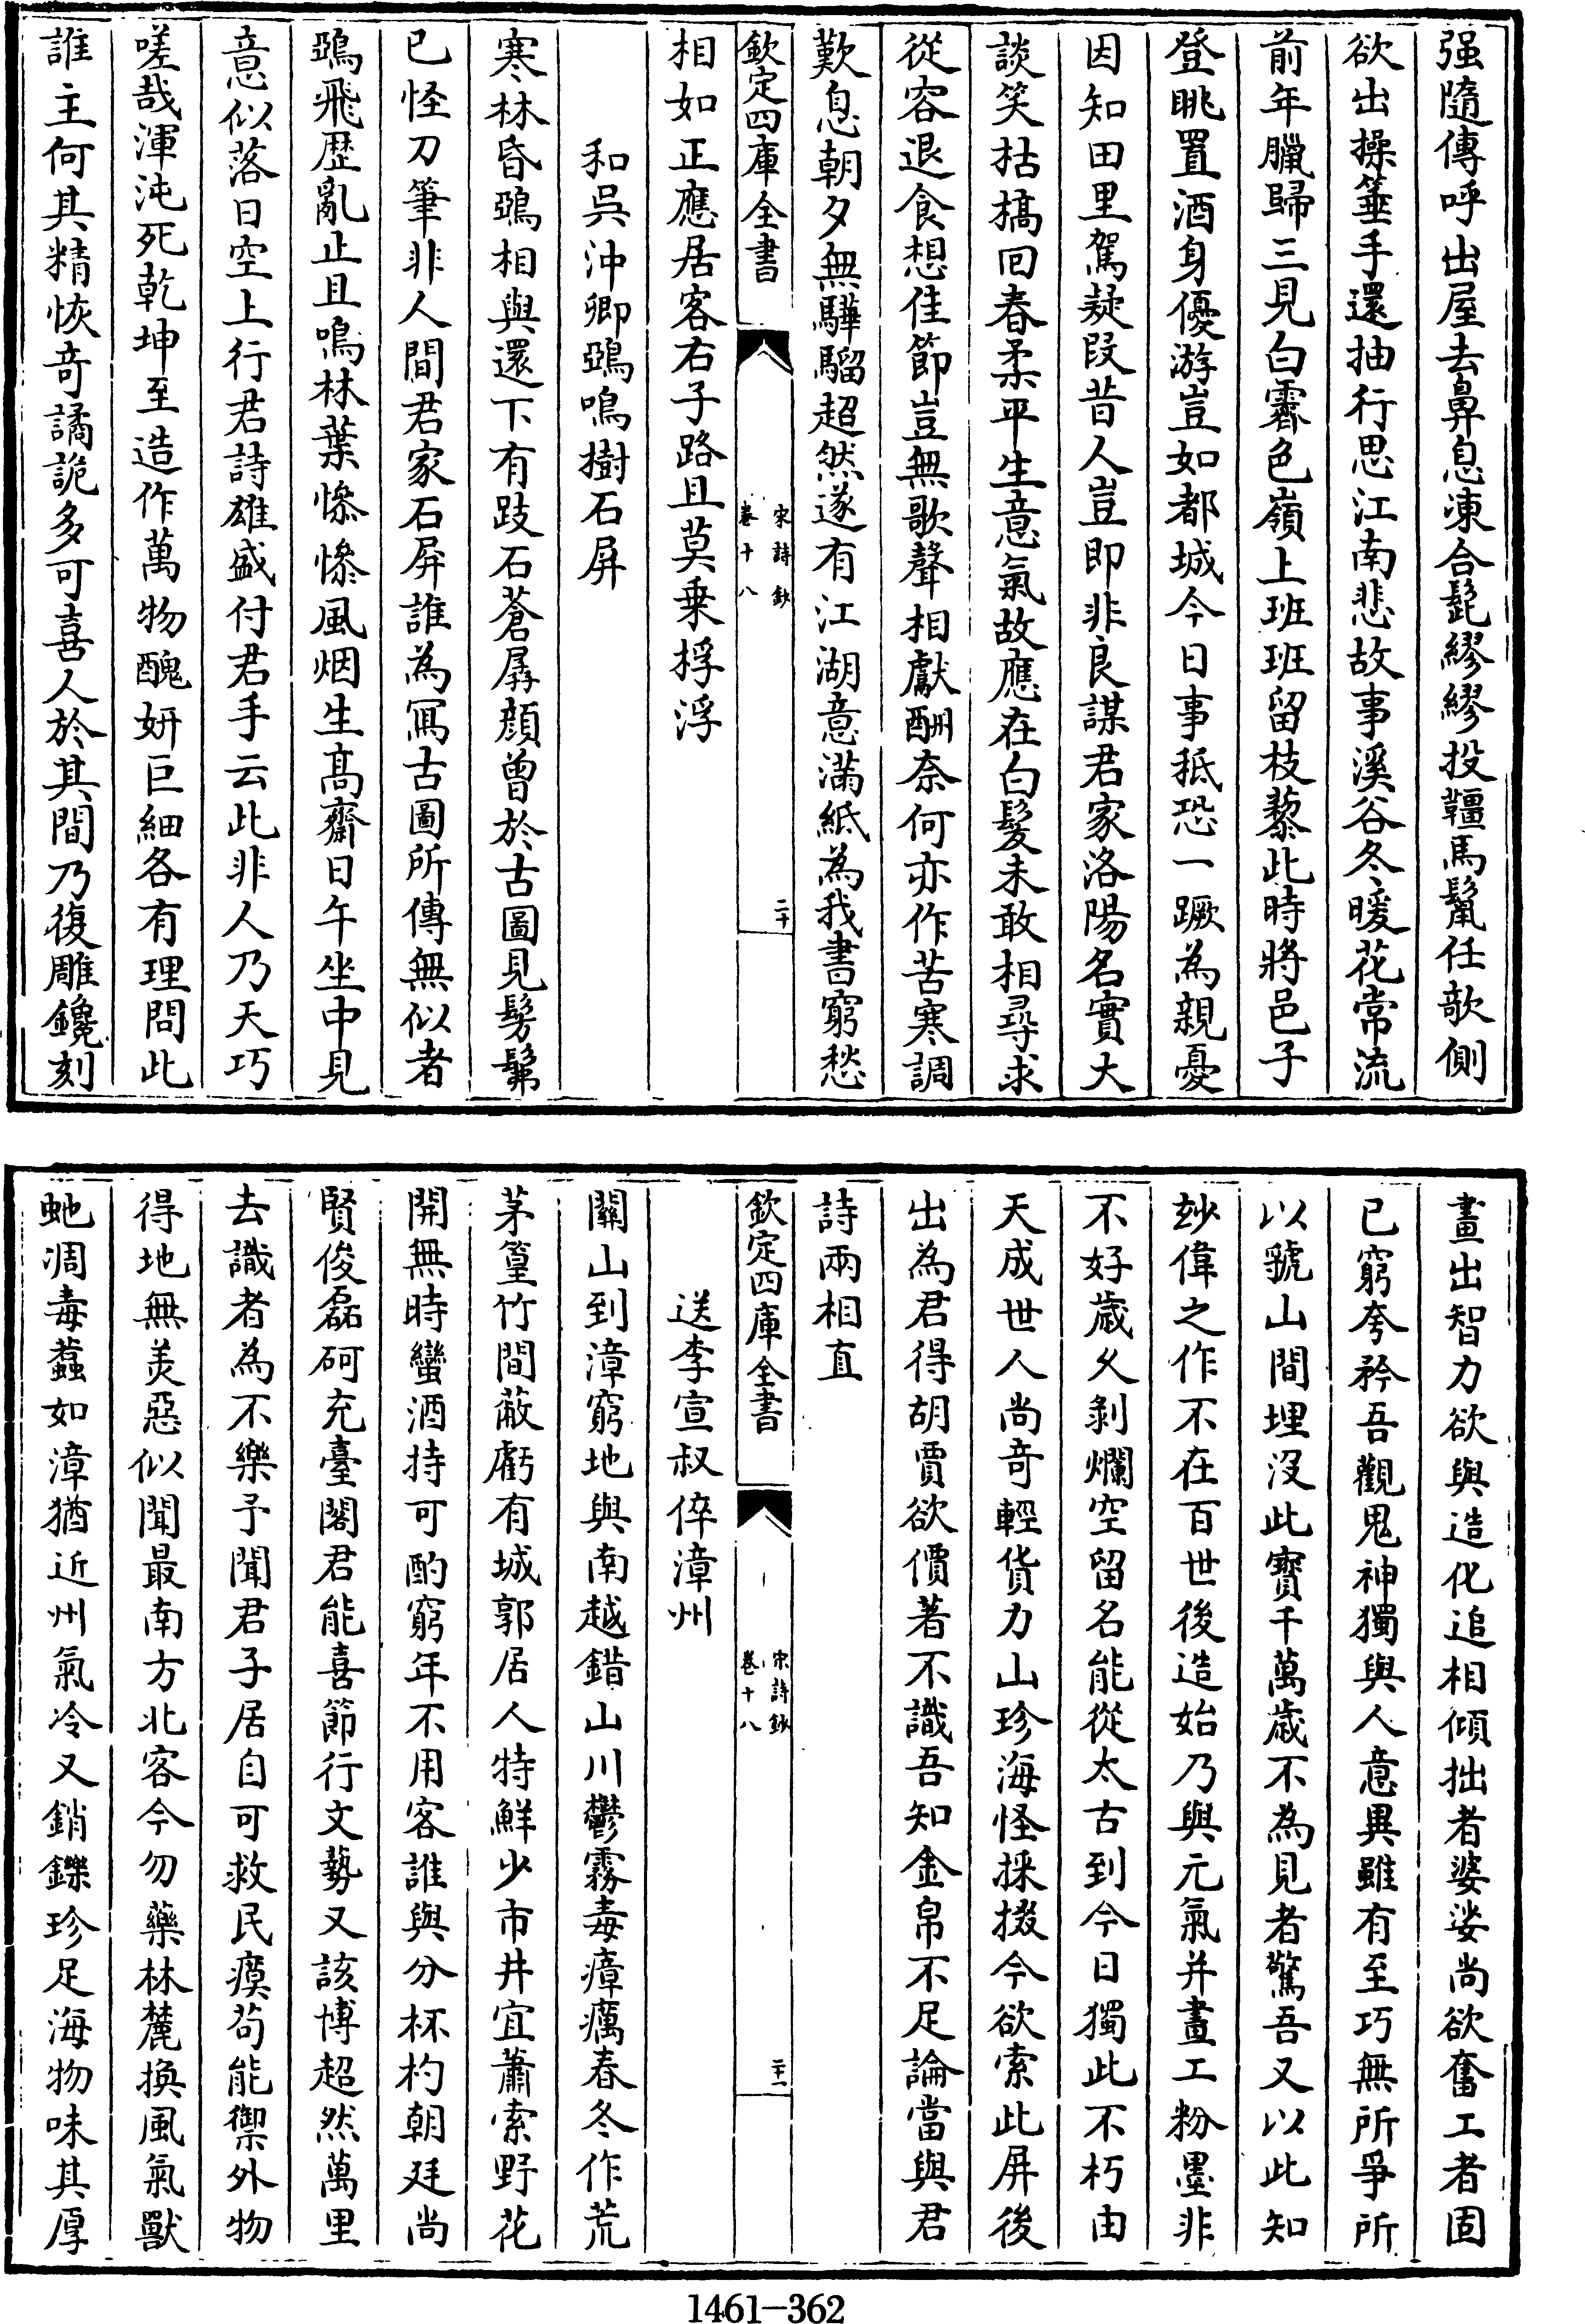 强隨傳呼出屋去鼻息凍合髭繆繆投韁馬鬣任欹側
欲出操箠手還抽行思江南悲故事溪谷冬暖花常流
前年臘歸三見白霽色嶺上班班留枝藜此時將邑子
登眺置酒身優游豈如都城今日事秪恐一蹶為親憂
因知田里駕疑段昔人豈即非良謀君家洛陽名實大
談笑枯槁回春柔平生意氣故應在白髮未敢相尋求
從容退食想佳節豈無歌聲相獻酬奈何亦作苦寒調
歎息朝夕無驊騮超然遂有江湖意滿紙為我書窮愁
欽定四庫全書
宋詩鈔
卷十八
二十
相如正應居客右子路且莫乗桴浮
和吳沖卿鵶鳴樹石屏
寒林昏鵶相與還下有跂石蒼孱顔曾於古圖見髣髴
已怪刀筆非人間君家石屏誰為冩古圖所傳無似者
鵶飛歴亂止且鳴林葉慘慘風烟生髙齋日午坐中見
意似落日空上行君詩雄盛付君手云此非人乃天巧
嗟哉渾沌死乾坤至造作萬物醜妍巨細各有理問此
誰主何其精恢奇譎詭多可喜人於其間乃復雕鑱刻
畫出智力欲與造化追相傾拙者婆娑尚欲奮工者固
已窮夸矜吾觀鬼神獨與人意異雖有至巧無所爭所
以虢山間埋沒此寳千萬歲不為見者驚吾又以此知
玅偉之作不在百世後造始乃與元氣并畫工粉墨非
不好歲久剝爛空留名能從太古到今日獨此不朽由
天成世人尚奇輕貨力山珍海怪採掇今欲索此屏後
出為君得胡賈欲價著不識吾知金帛不足論當與君
詩兩相直
欽定四庫全書
宋詩鈔
卷十八
二十一
送李宣叔倅漳州
關山到漳窮地與南越錯山川鬱霧毒瘴癘春冬作荒
茅篁竹間蔽虧有城郭居人特鮮少市井宜蕭索野花
開無時蠻酒持可酌窮年不用客誰與分杯杓朝廷尚
賢俊磊砢充臺閣君能喜節行文勢又該博超然萬里
去識者為不樂予聞君子居自可救民瘼茍能禦外物
得地無羙惡似聞最南方北客今勿藥林麓換風氣獸
虵凋毒蠚如漳猶近州氣冷又銷鑠珍足海物味其厚
1461-362